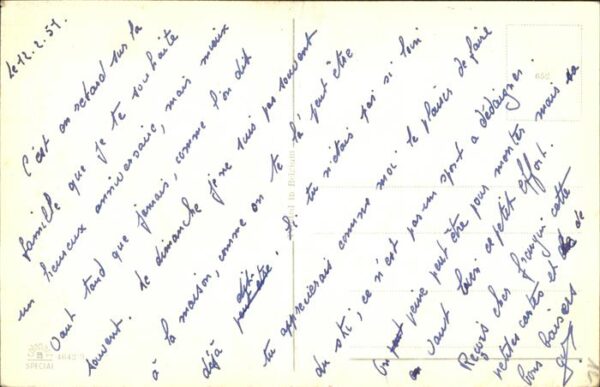 Le 12.2.51.
C'est en retard sur la
famille que je te souhaite
un heureux anniversaire, mais mieux
vaut tard que jamais, comme l'on dit
souvent. Le dimanche je ne suis pas souvent
à la maison, comme on te l'a peut être
déjà dit. Si tu n'étais pas si loin
tu apprécierais comme moi le plaisir de faire
du ski, ce n'est pas un sport a dédaigner.
On peine peut être pour monter mais ça
en vaut bien ce petit effort.
Reçois cher cette
petites cartes et de
bons baisers
652
in Belgium
SPECIAL